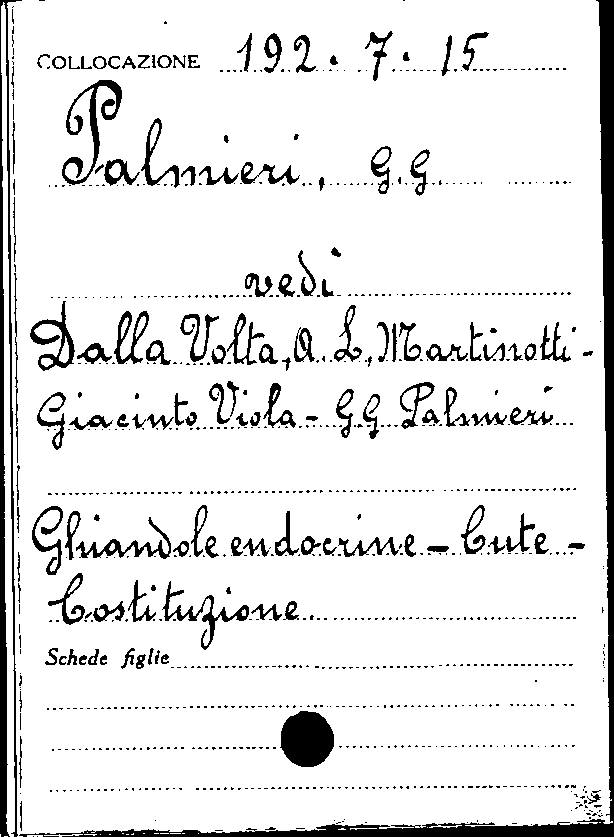 COLLOCAZIONE 192. 7. 15
Palmieri, G.G.
vedi
Dalla Volta, A. L, Martinotti -
Giacinto Viola - G.G. Palmieri
Ghiandole endocrine - Cute -
Costituzione.
Schede figlie